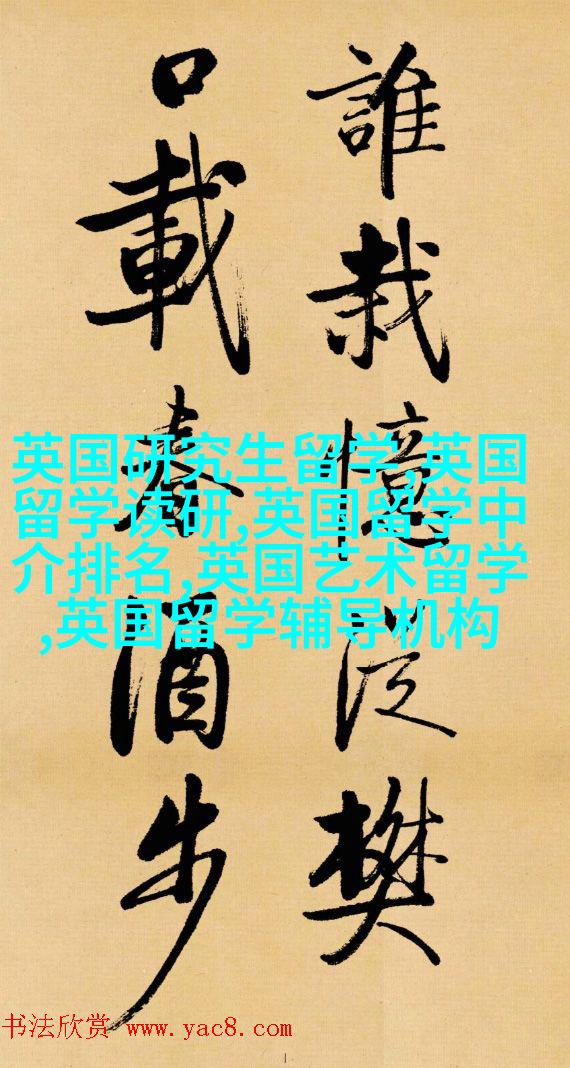 誰栽憶泛樊
口載春酒步
英国研究生留学,英国
留学读研,英国留学中
介排名,英国艺术留学
,英国留学辅导机构
书法欣赏 www.yac8.com